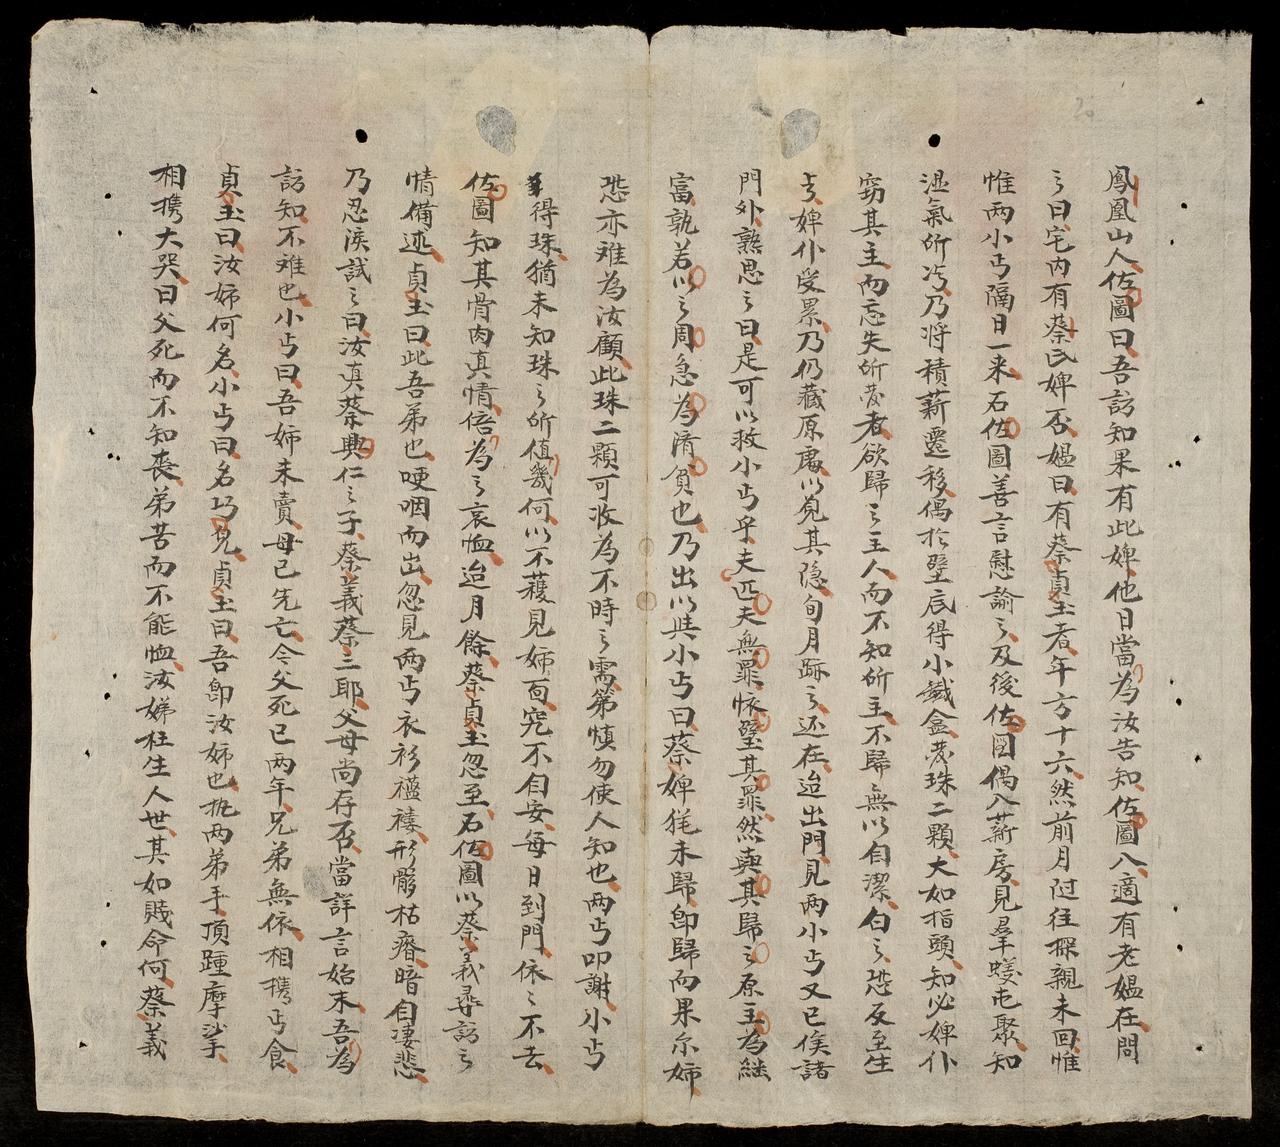 鳳凰山人佐圖曰吾訪知果有此婢他日當為汝告知佐圖入適有老媪在問
之曰宅内有蔡氏婢否媪曰有蔡貞玉者年方十六然前月過往探親未回惟
惟兩小丐隔日一来石佐圖善言慰諭之及後佐圖偶入薪房見羣蟻屯聚知
湿氣所凭乃将積薪遷移偶於壁底得小鐵盒蔵珠二顆大如指頭知必婢仆
窃其主而忘失所蔵者欲歸之主人而不知所主不歸無以自潔白之恐反至生
丐婢仆受累乃仍藏原處以覓其隐旬月跡之还在迨出門見兩小丐又已俟諸
門外熟思之曰是可以救小丐乎夫匹夫無罪懐璧其罪然與其歸之原主為継
富孰若以之周急為濟貧也乃出以與小丐曰蔡婢猶未歸即歸而果尔姉
恐亦难為汝顧此珠二顆可收為不時之需第慎勿使人知也兩丐叩謝小丐
得珠猶未知珠之所值幾何以不獲見姉面究不自安每日到門依之不去
佐圖知其骨肉真情倍為之哀恤迨月餘蔡貞玉忽至石佐圖以蔡義尋訪之
情備述貞玉曰此吾弟也哽咽而出忽見兩丐衣衫襤褸形骸枯瘠暗自凄悲
乃忍淚試之曰汝真蔡興仁之子蔡義蔡三耶父母尚存否當詳言始末吾為
訪知不难也小丐曰吾姉未賣母已先亡今父死已两年兄弟無依相攜丐食
貞玉曰汝姉何名小丐曰名巧兒貞玉曰吾卽汝姉也執两弟手頂踵摩挲
相攜大哭曰父死而不知喪弟苦而不能恤汝娣枉生人世其如賤命何蔡義